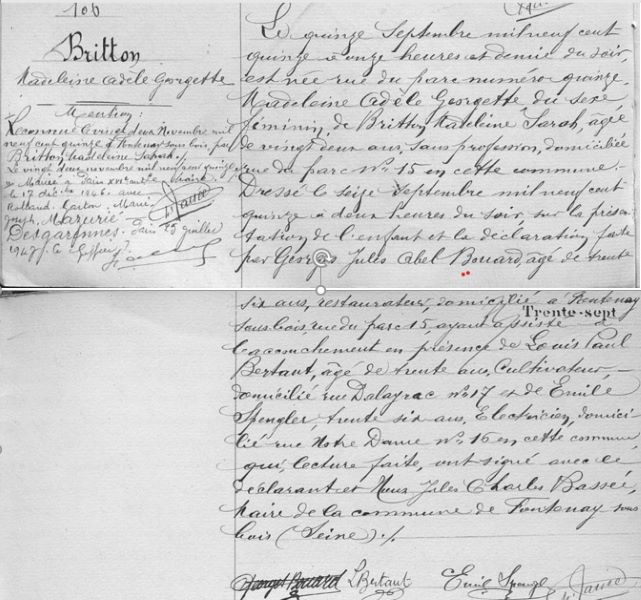 106
Britton
Madeleine Adèle Georgette
Mention:
Reconnue le vingt deux Novembre mil
neuf cent quinze à Fontenay sous bois, par
Britton Madeleine Sarah ./.
Le vingt deux novembre mil neuf cent quinze
Mariée à Paris
le 12 1946 avec
Rolland, Gaston, Marie
Joseph, Mazurié
Desgarennes. Paris 15 juillet
1947. Le Greffier
Le quinze Septembre mil neuf cent
quinze à onze heures et demie du soir,
est née rue du parc numéro quinze
Madeleine Adèle Georgette, du sexe
féminin, de Britton Madeleine Sarah, agée
de vingt deux ans, sans profession, domiciliée
rue du parc No 15 en cette commune. –
Dressé le seize Septembre mil neuf cent
quinze à deux heures du soir, sur la présen
tation de l'enfant et la déclaration faite
par Georges Jules Abel Bouard, agé de trente
six ans, restaurateur, domicilié à Fontenay
Trente-sept
sous bois, rue du parc 15, ayant assisté à
l'accouchement en présence de Louis Paul
Bertaut, âgé de trente ans, Cultivateur, –
domicilié rue Dalayrac no 17 et de Emile
Spengler, trente six ans, Electricien, domici
lié rue Notre Dame No 16 en cette commune
qui, lecture faite, ont signé avec le
déclarant et Nous Jules Charles Bassée,
Maire de la commune de Fontenay sous
bois (Seine) ./.
Georges Bouard L Bertaut Emile Spengler